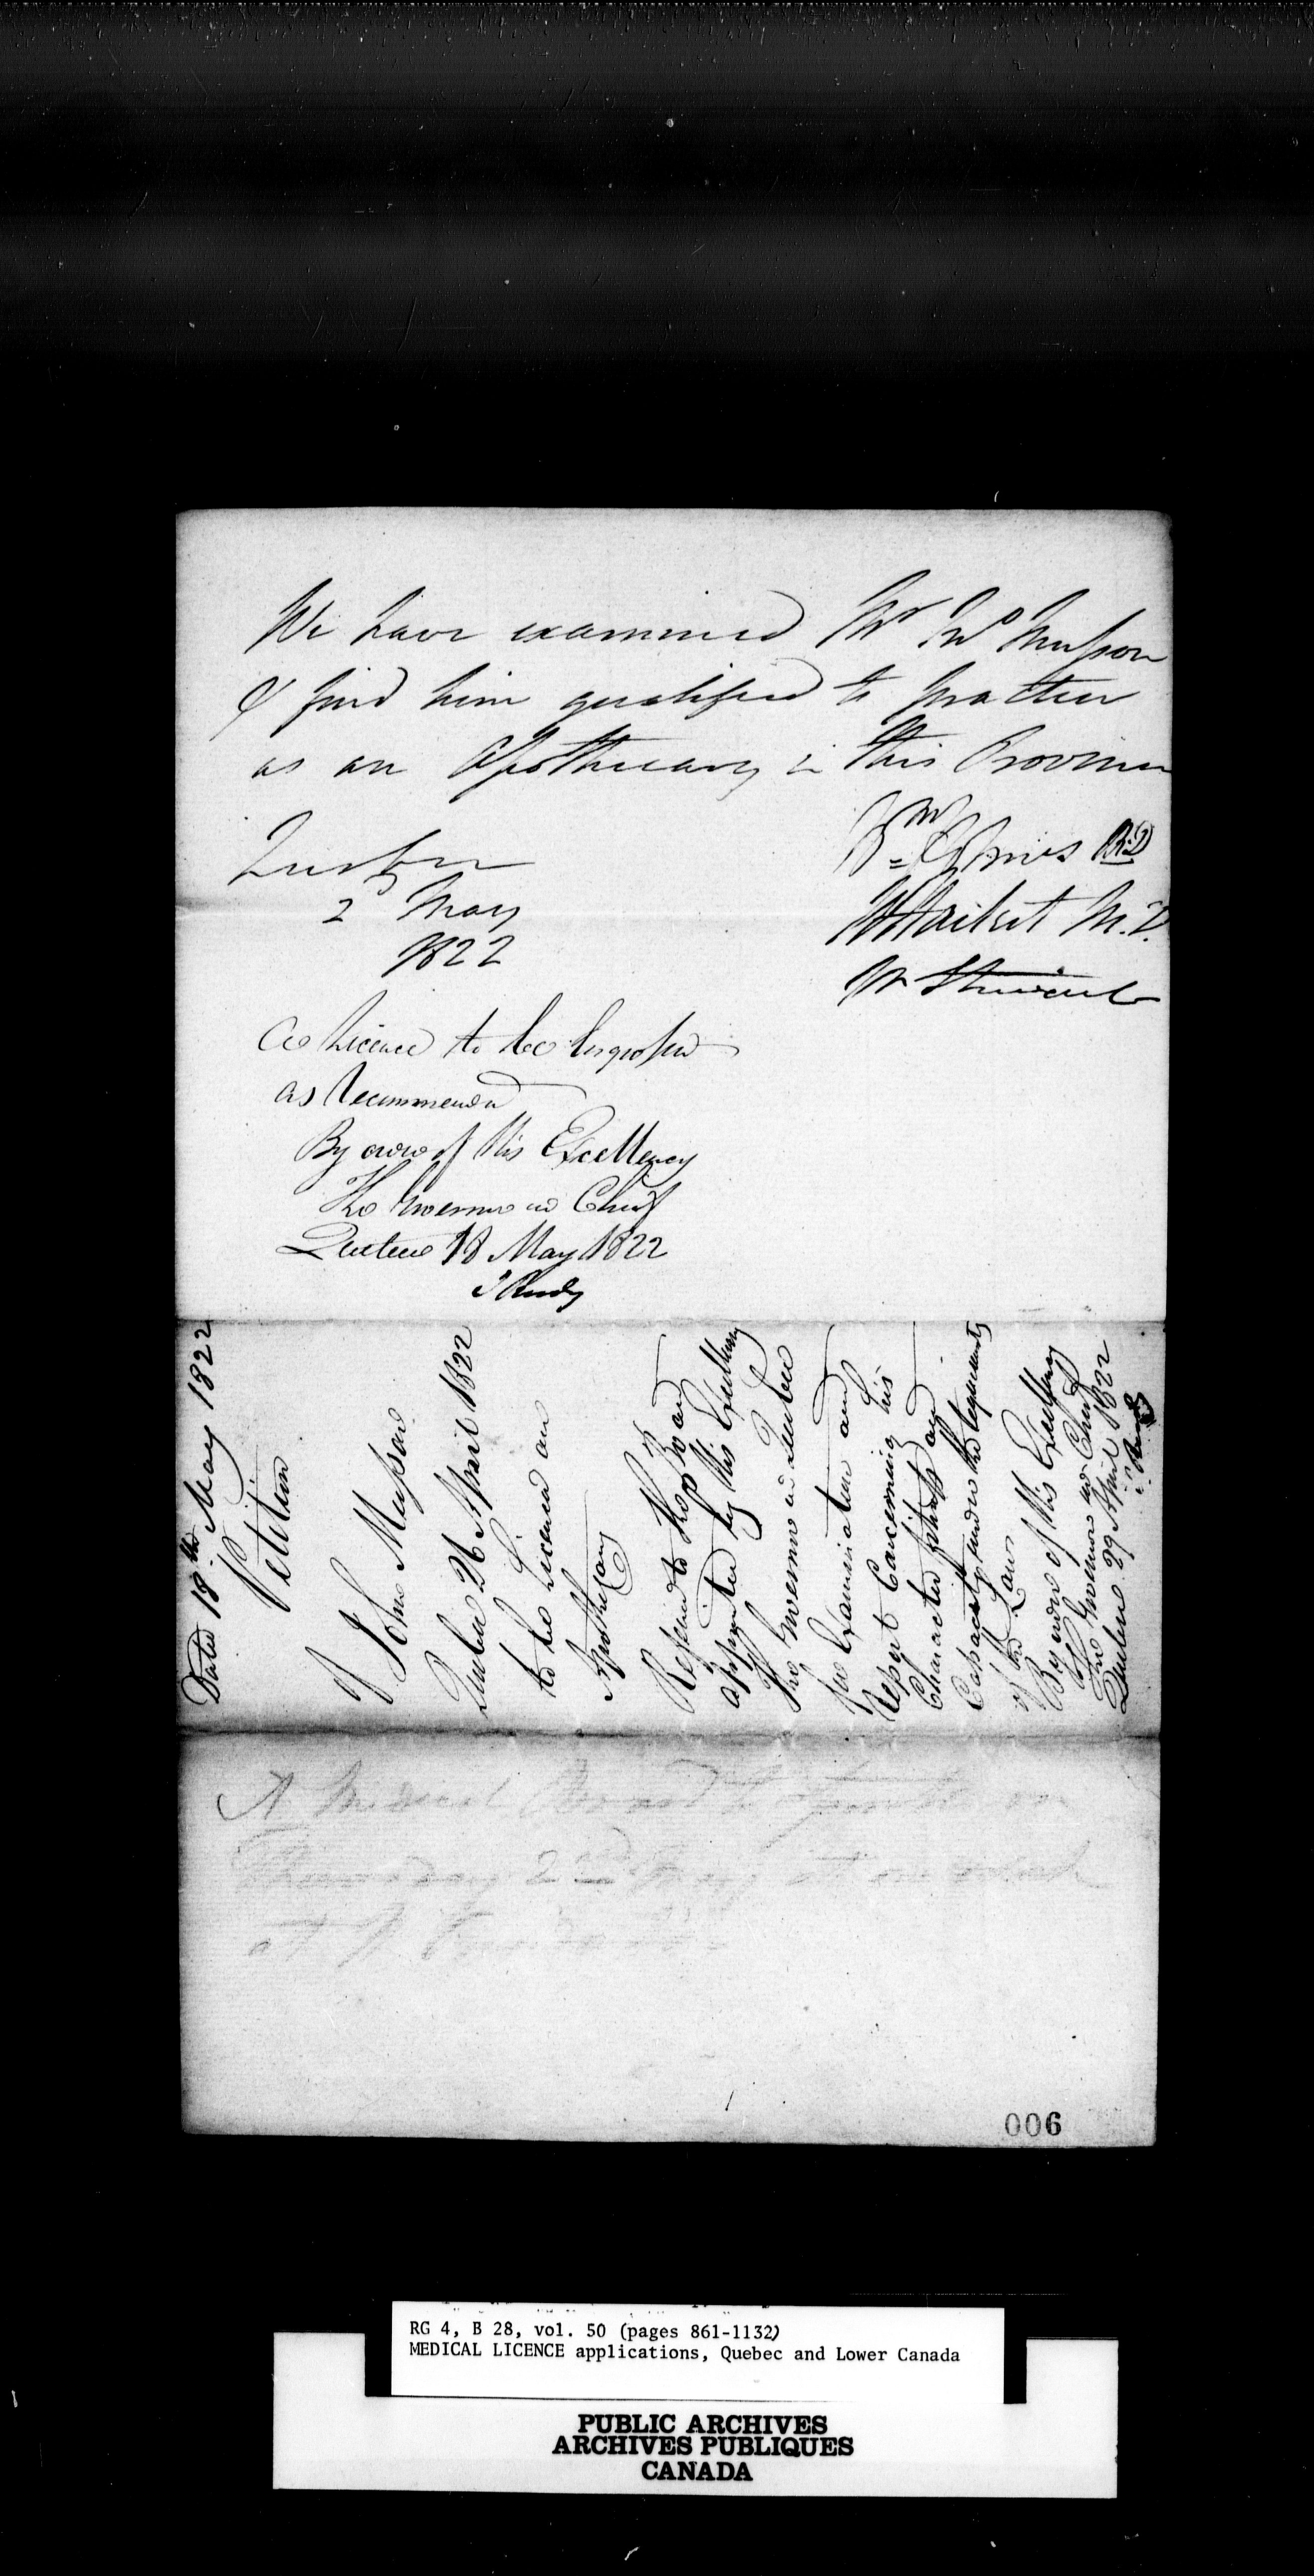 We have examined Mr Jno Musson
& find him qualified to practice
as an Apothecary in this Province
Quebec
2 May
1822
Wm Holmes
W Hacket M.D.
A Licence to be Engrossed
as Recommended
By order of His Excellency
The Governor in Chief
Quebec 18 May 1822
J Ready
Dated 18th May 1822
Petition
of John Musson
Quebec 26 April 1822
to be Licenced an
Apothecary
Referred to the Board
appointed by His Excellency
The Governor in Quebec
for Examination and
Report Concerning his
Character fitness and
Capacity under the requirements
of the Laws
By order of His Excellency
The Governor in Chief
Quebec 29 April 1822
J Ready
A Medical Board to on
Thursday 2nd May at
at
006
RG 4, B 28, vol. 50 (pages 861-1132)
MEDICAL LICENCE applications, Quebec and Lower Canada
PUBLIC ARCHIVES
ARCHIVES PUBLIQUES
CANADA